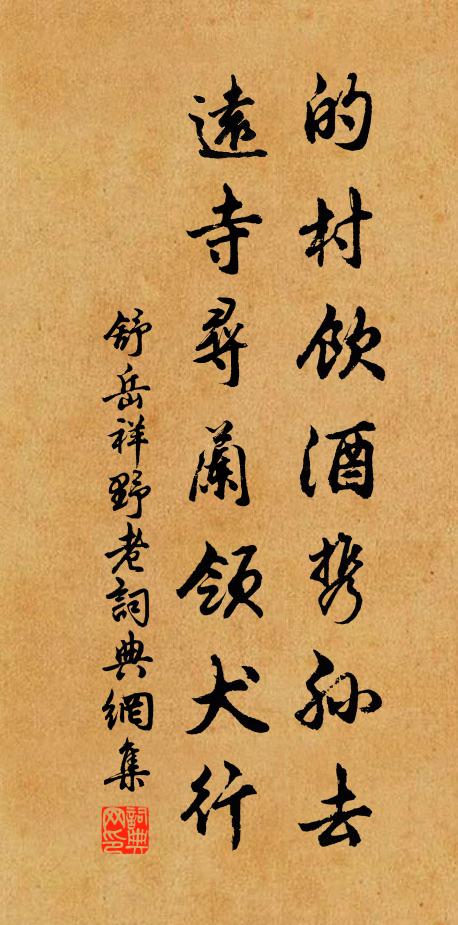 的村飲酒携孫去
遠寺尋蘭領犬行
舒岳祥野老詞典網集
詞典网印